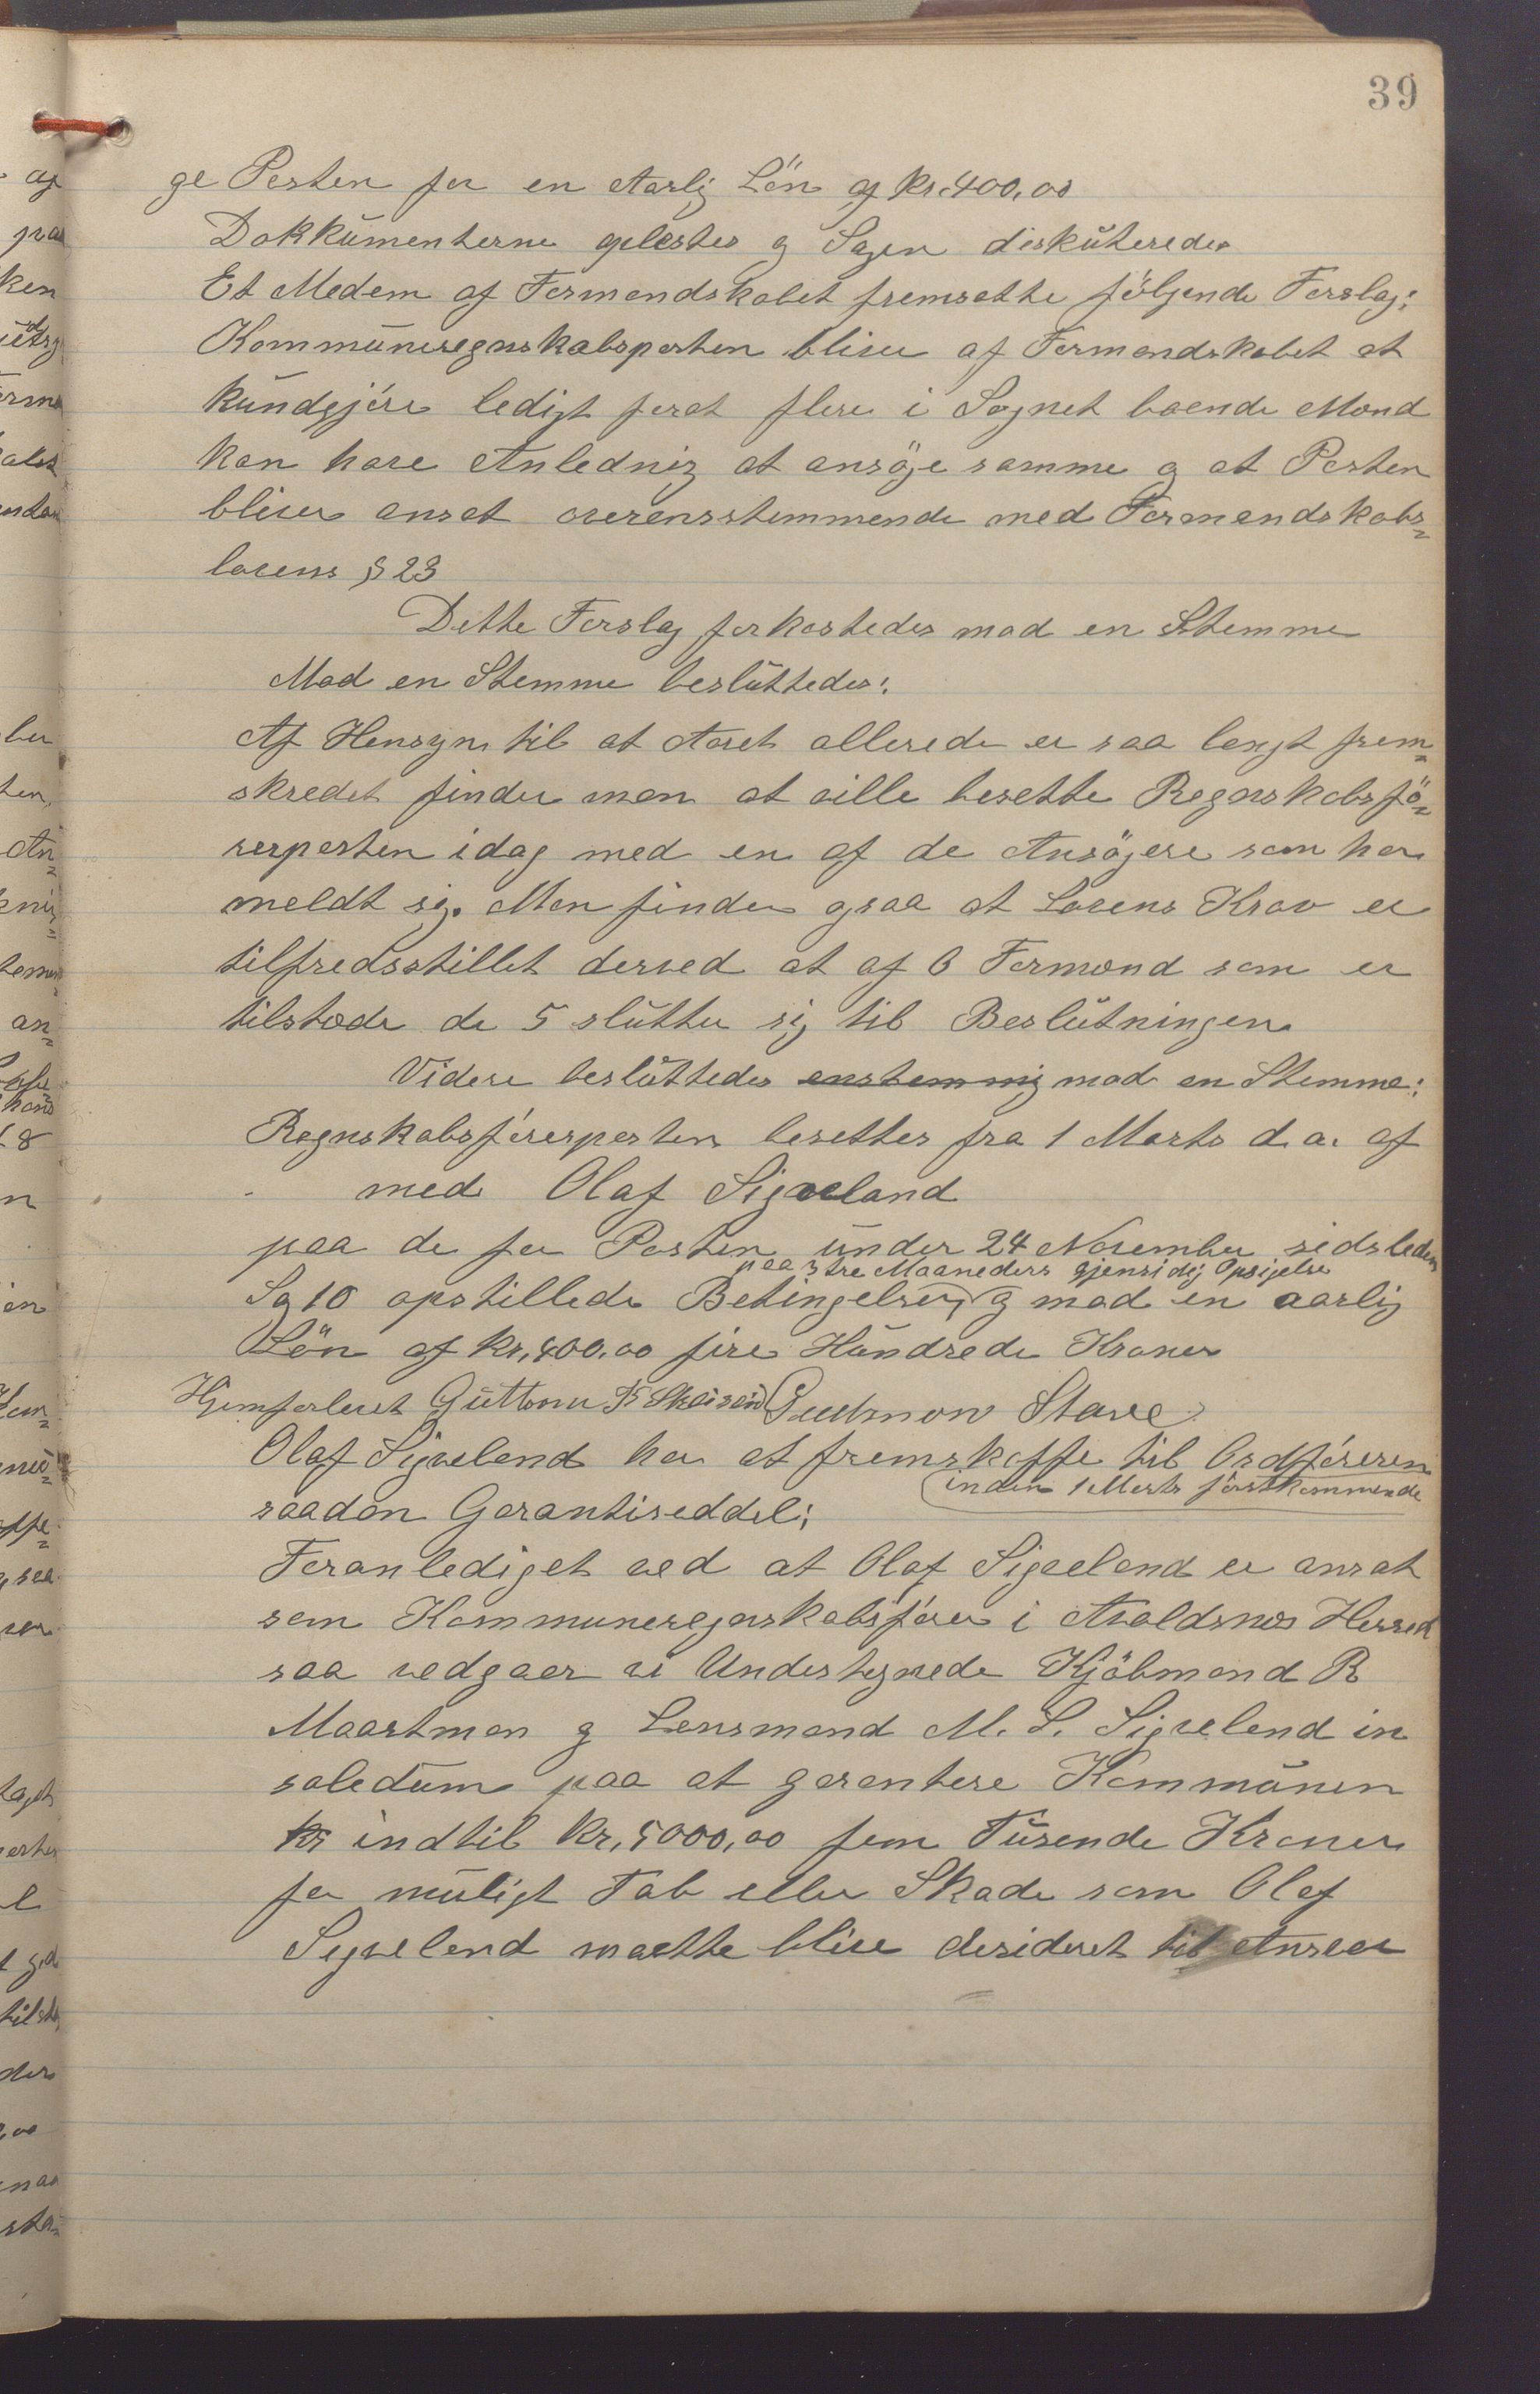 39
ge Posten for en Aarlig Lön af kr. 400,00
Dokkumenterne oplæstes og Sagen diskuteredes
Et Medem af Formandskabet fremsatte fölgende Forslag:
Kommuneregnskabsposten bliver af Formandskabet at
kundgjöre ledigt forat flere i Sognet boende Mænd
kan have Anledning at ansöge samme og at Posten
bliver ansat overensstemmende med Formandskabs-
lovens § 23
Dette Forslag forkastedes mod en Stemme
Mod en Stemme besluttedes:
Af Hensyn til at Aaret allerede er saa langt frem-
skredet finder man at ville besætte Regnskabsfö-
rerposten idag med en af de Ansögere som har
meldt sig. Man finder ogsaa at Lovens Krav er
tilfredsstillet derved at af 6 Formænd som er
tilstæde de 5 slutter sig til Beslutningen
Videre besluttedes enstemmig mod en Stemme:
Regnskabsförerposten besættes fra 1 Marts d. a. af
med Olaf Sigveland
paa de for Posten under 24 November sidstleden
paa 3 tre Maaneders gjensidig Opsigelse
Sag 10 opstillede Betingelser, og mod en aarlig
Lön af kr. 400.00 fire Hundrede Kroner
Hjemforlovet Guttorm Gudmon Stave
Olaf Sigveland har at fremskaffe til Ordföreren
inden 1 Marts förstkommende
saadan Garantiseddel:
Foranlediget ved at Olaf Sigveland er ansat
som Kommuneregnskabsförer i Avaldsnes Herred
saa vedgaar vi Undertegnede Kjöbmand R
Maartman og Lensmand M. S. Sigveland in
soledum paa at garantere Kommunen
kr indtil kr. 5000,00 fem Tusende Kroner
for muligt Tab eller Skade som Olaf
Sigveland maatte blive desideret til Ansvar